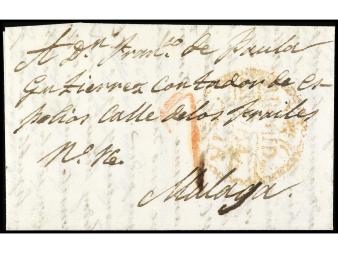 A Dn. Franco. de Paula
Gutierrez Contador de Es-
polios Calle de los Frailes
No.
Malaga.